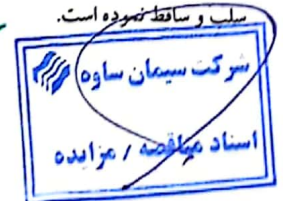 سلب و ساقط نموده است.
شرکت سیمان ساوه
اسناد مناقصه / مزایده